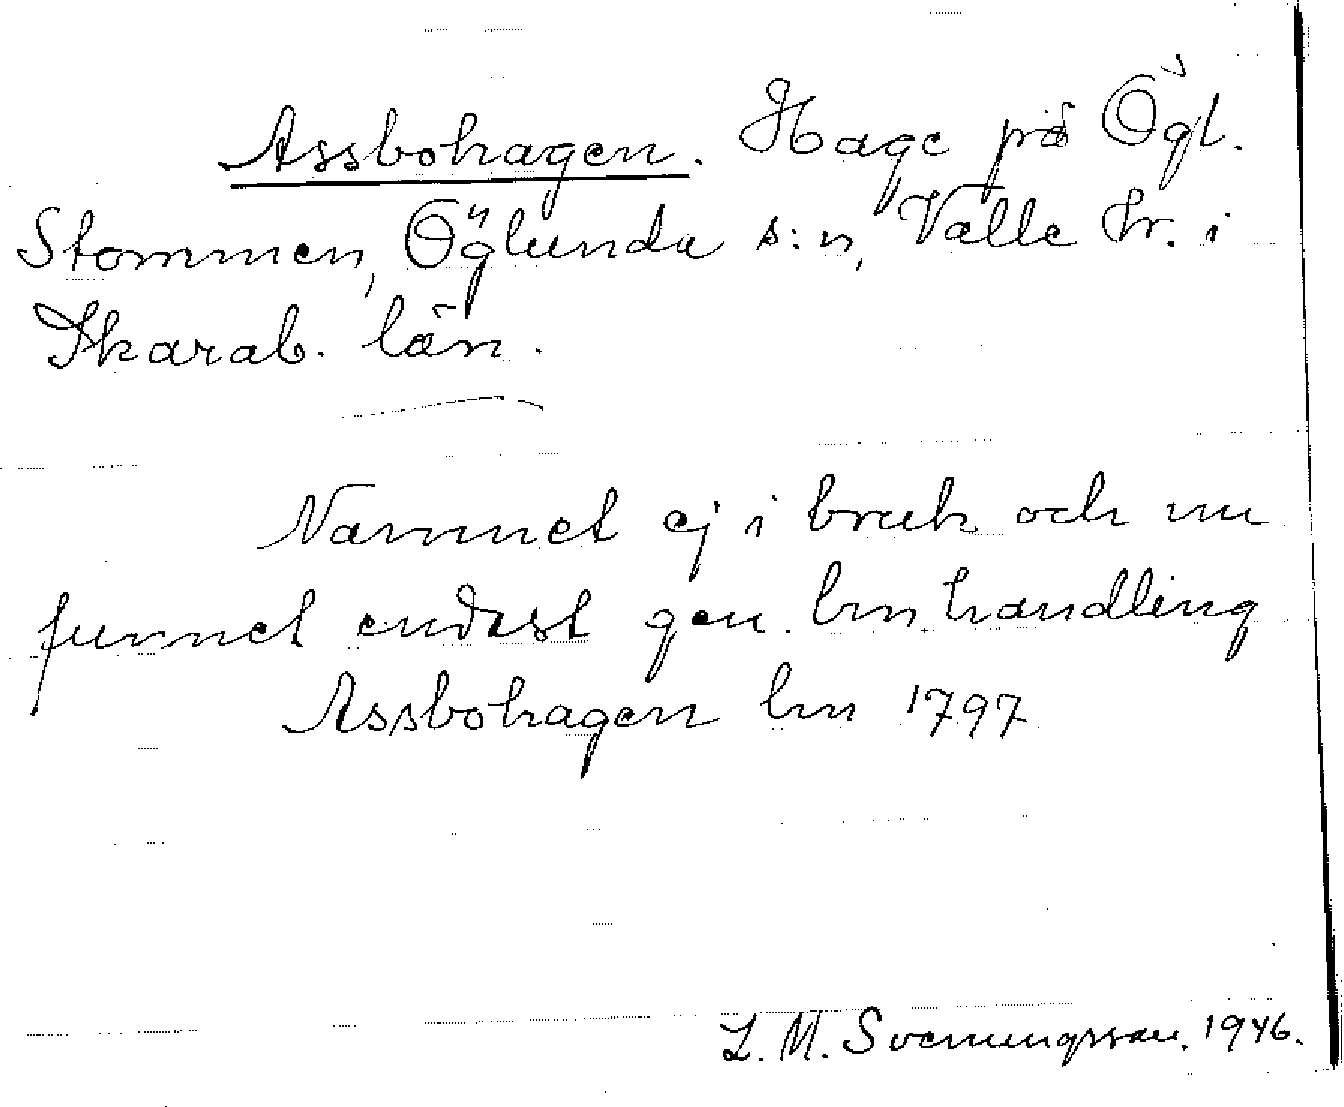 Assbohagen. Hage på Ögl.
Stommen, Öglunda s:n, Valle hr. i
Skarab. län.
Namnet ej i bruk och nu
funnet endast gen. lm. handling
Assbohagen lm 1797
L. M. Svenungsson. 1946.